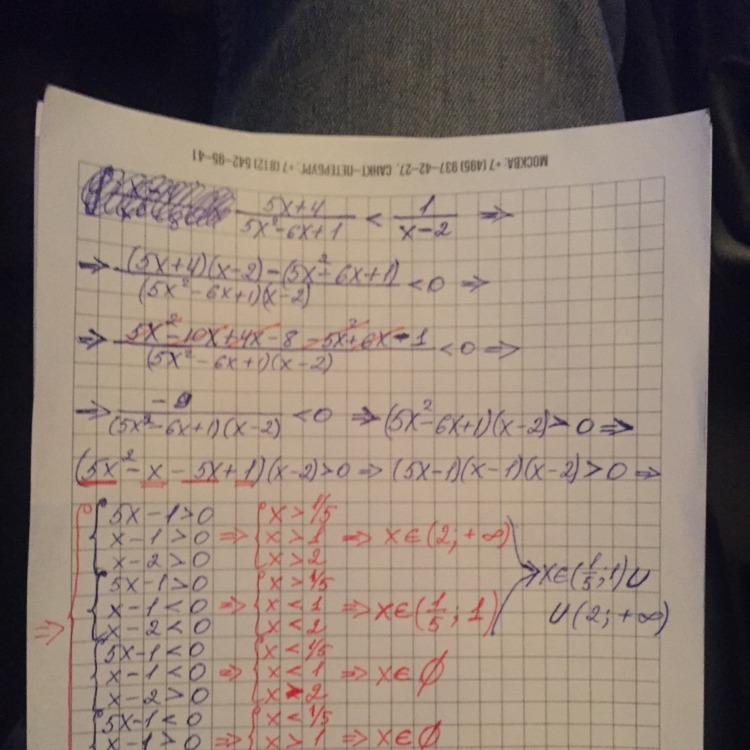 МОСКВА: +7 (495) 937-42-27, САНКТ-ПЕТЕРБУРГ: +7 (812) 642-95-41
(5x+4)/(5x²-6x+1) < 1/(x-2) =>
=> ((5x+4)(x-2)-(5x²-6x+1))/((5x²-6x+1)(x-2)) < 0 =>
=> (5x²-10x+4x-8-5x²+6x-1)/((5x²-6x+1)(x-2)) < 0 =>
=> (-9)/((5x²-6x+1)(x-2)) < 0 => (5x²-6x+1)(x-2) > 0 =>
(5x²-x-5x+1)(x-2)>0 => (5x-1)(x-1)(x-2)>0 =>
=> [ { 5x-1>0 => { x>1/5
x-1>0 x>1 => x∈(2;+∞)
x-2>0 x>2
{ 5x-1>0 => { x>1/5
x-1<0 x<1 => x∈(1/5;1)
x-2<0 x<2
=> x∈(1/5;1)∪
∪(2;+∞)
{ 5x-1<0 => { x<1/5
x-1<0 x<1 => x∈∅
x-2>0 x>2
{ 5x-1<0 => { x<1/5
x-1>0 x>1 => x∈∅